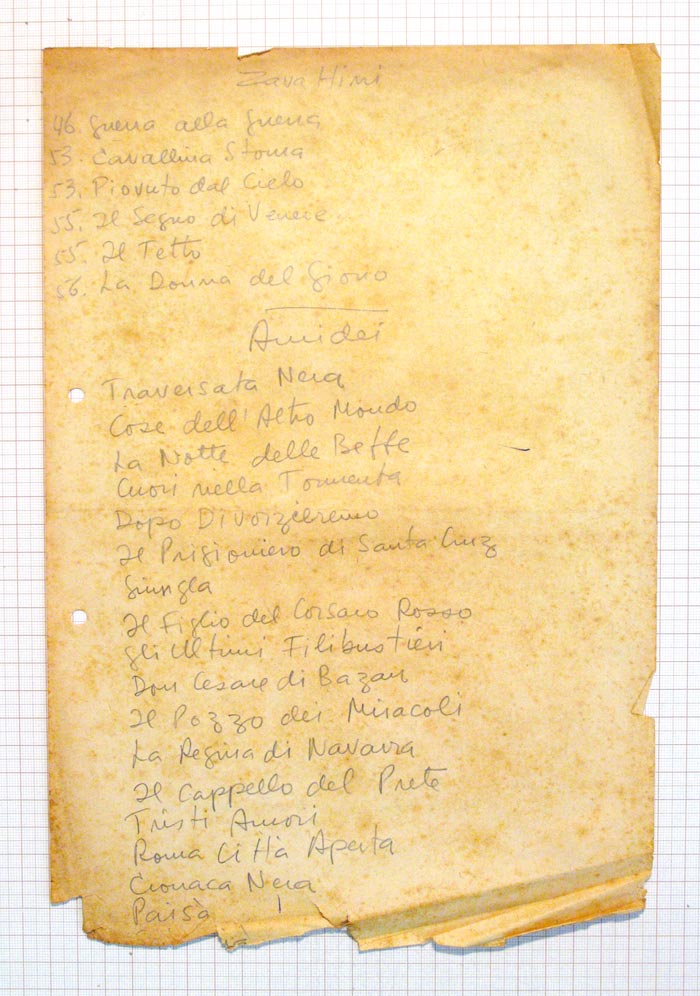 Zavattini
46. Guerra alla Guerra
53. Cavallina Storna
53. Piovuto dal Cielo
55. Il Segno di Venere
55. Il Tetto
56. La Donna del Giorno
Amidei
Traversata Nera
Cose dell'Altro Mondo
La Notte delle Beffe
Cuori nella Tormenta
Dopo Divorzieremo
Il Prigioniero di Santa Cruz
Giungla
Il Figlio del Corsaro Rosso
Gli Ultimi Filibustieri
Don Cesare di Bazan
Il Pozzo dei Miracoli
La Regina di Navarra
Il Cappello del Prete
Tristi Amori
Roma Città Aperta
Cronaca Nera
Paisà